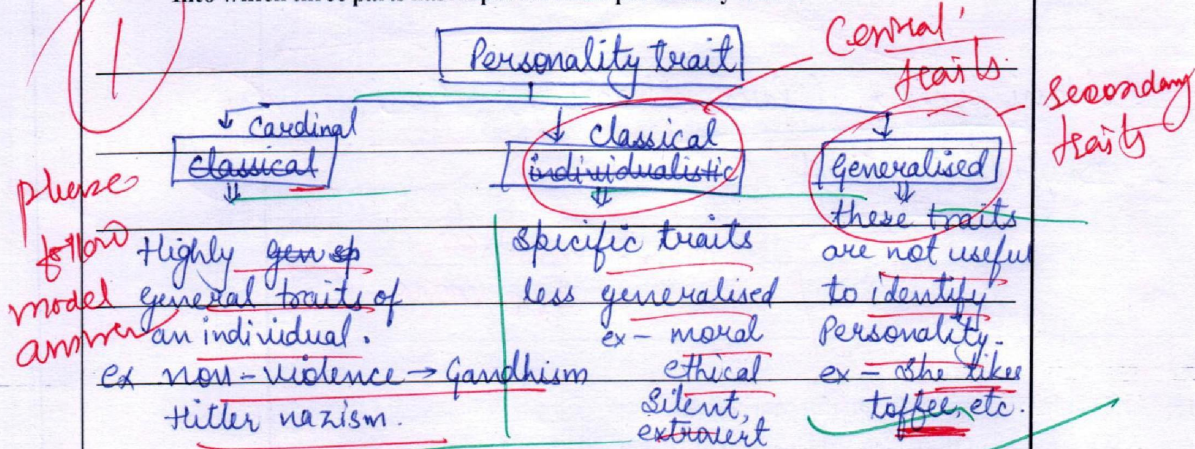 Personality trait
Central
traits.
Secondary
traits
1
Cardinal
classical
classical
individualistic
Generalised
please
follow
model
answer
Highly gen sp
general traits of
an individual.
ex non-violence → Gandhism
Hitler nazism.
specific traits
less generalised
ex - moral
ethical
silent,
extrovert
these traits
are not useful
to identify
Personality.
ex - she likes
toffee, etc.